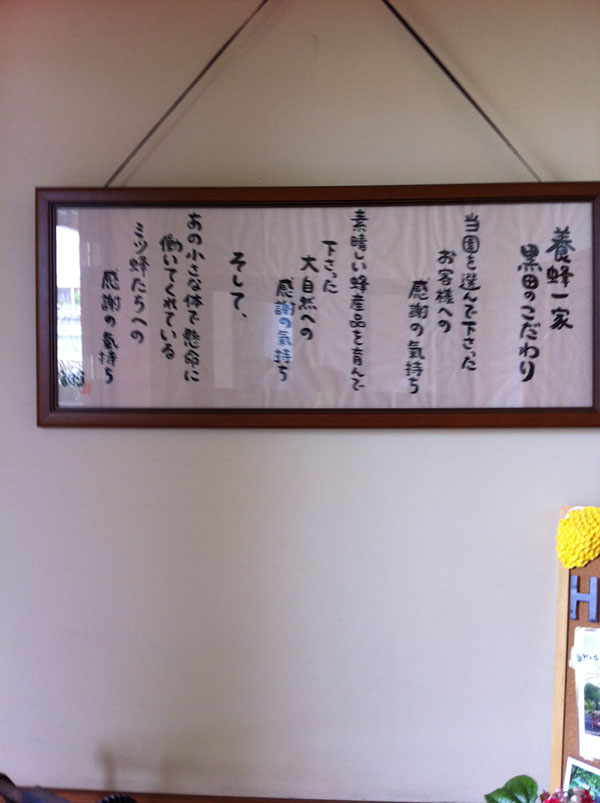 養蜂一家
黒田のこだわり
当園を選んで下さった
お客様への
感謝の氣持ち
素晴しい蜂産品を育んで
下さった
大自然への
感謝の氣持ち
そして、
あの小さな体で懸命に
働いてくれている
ミツ蜂たちへの
感謝の氣持ち
H